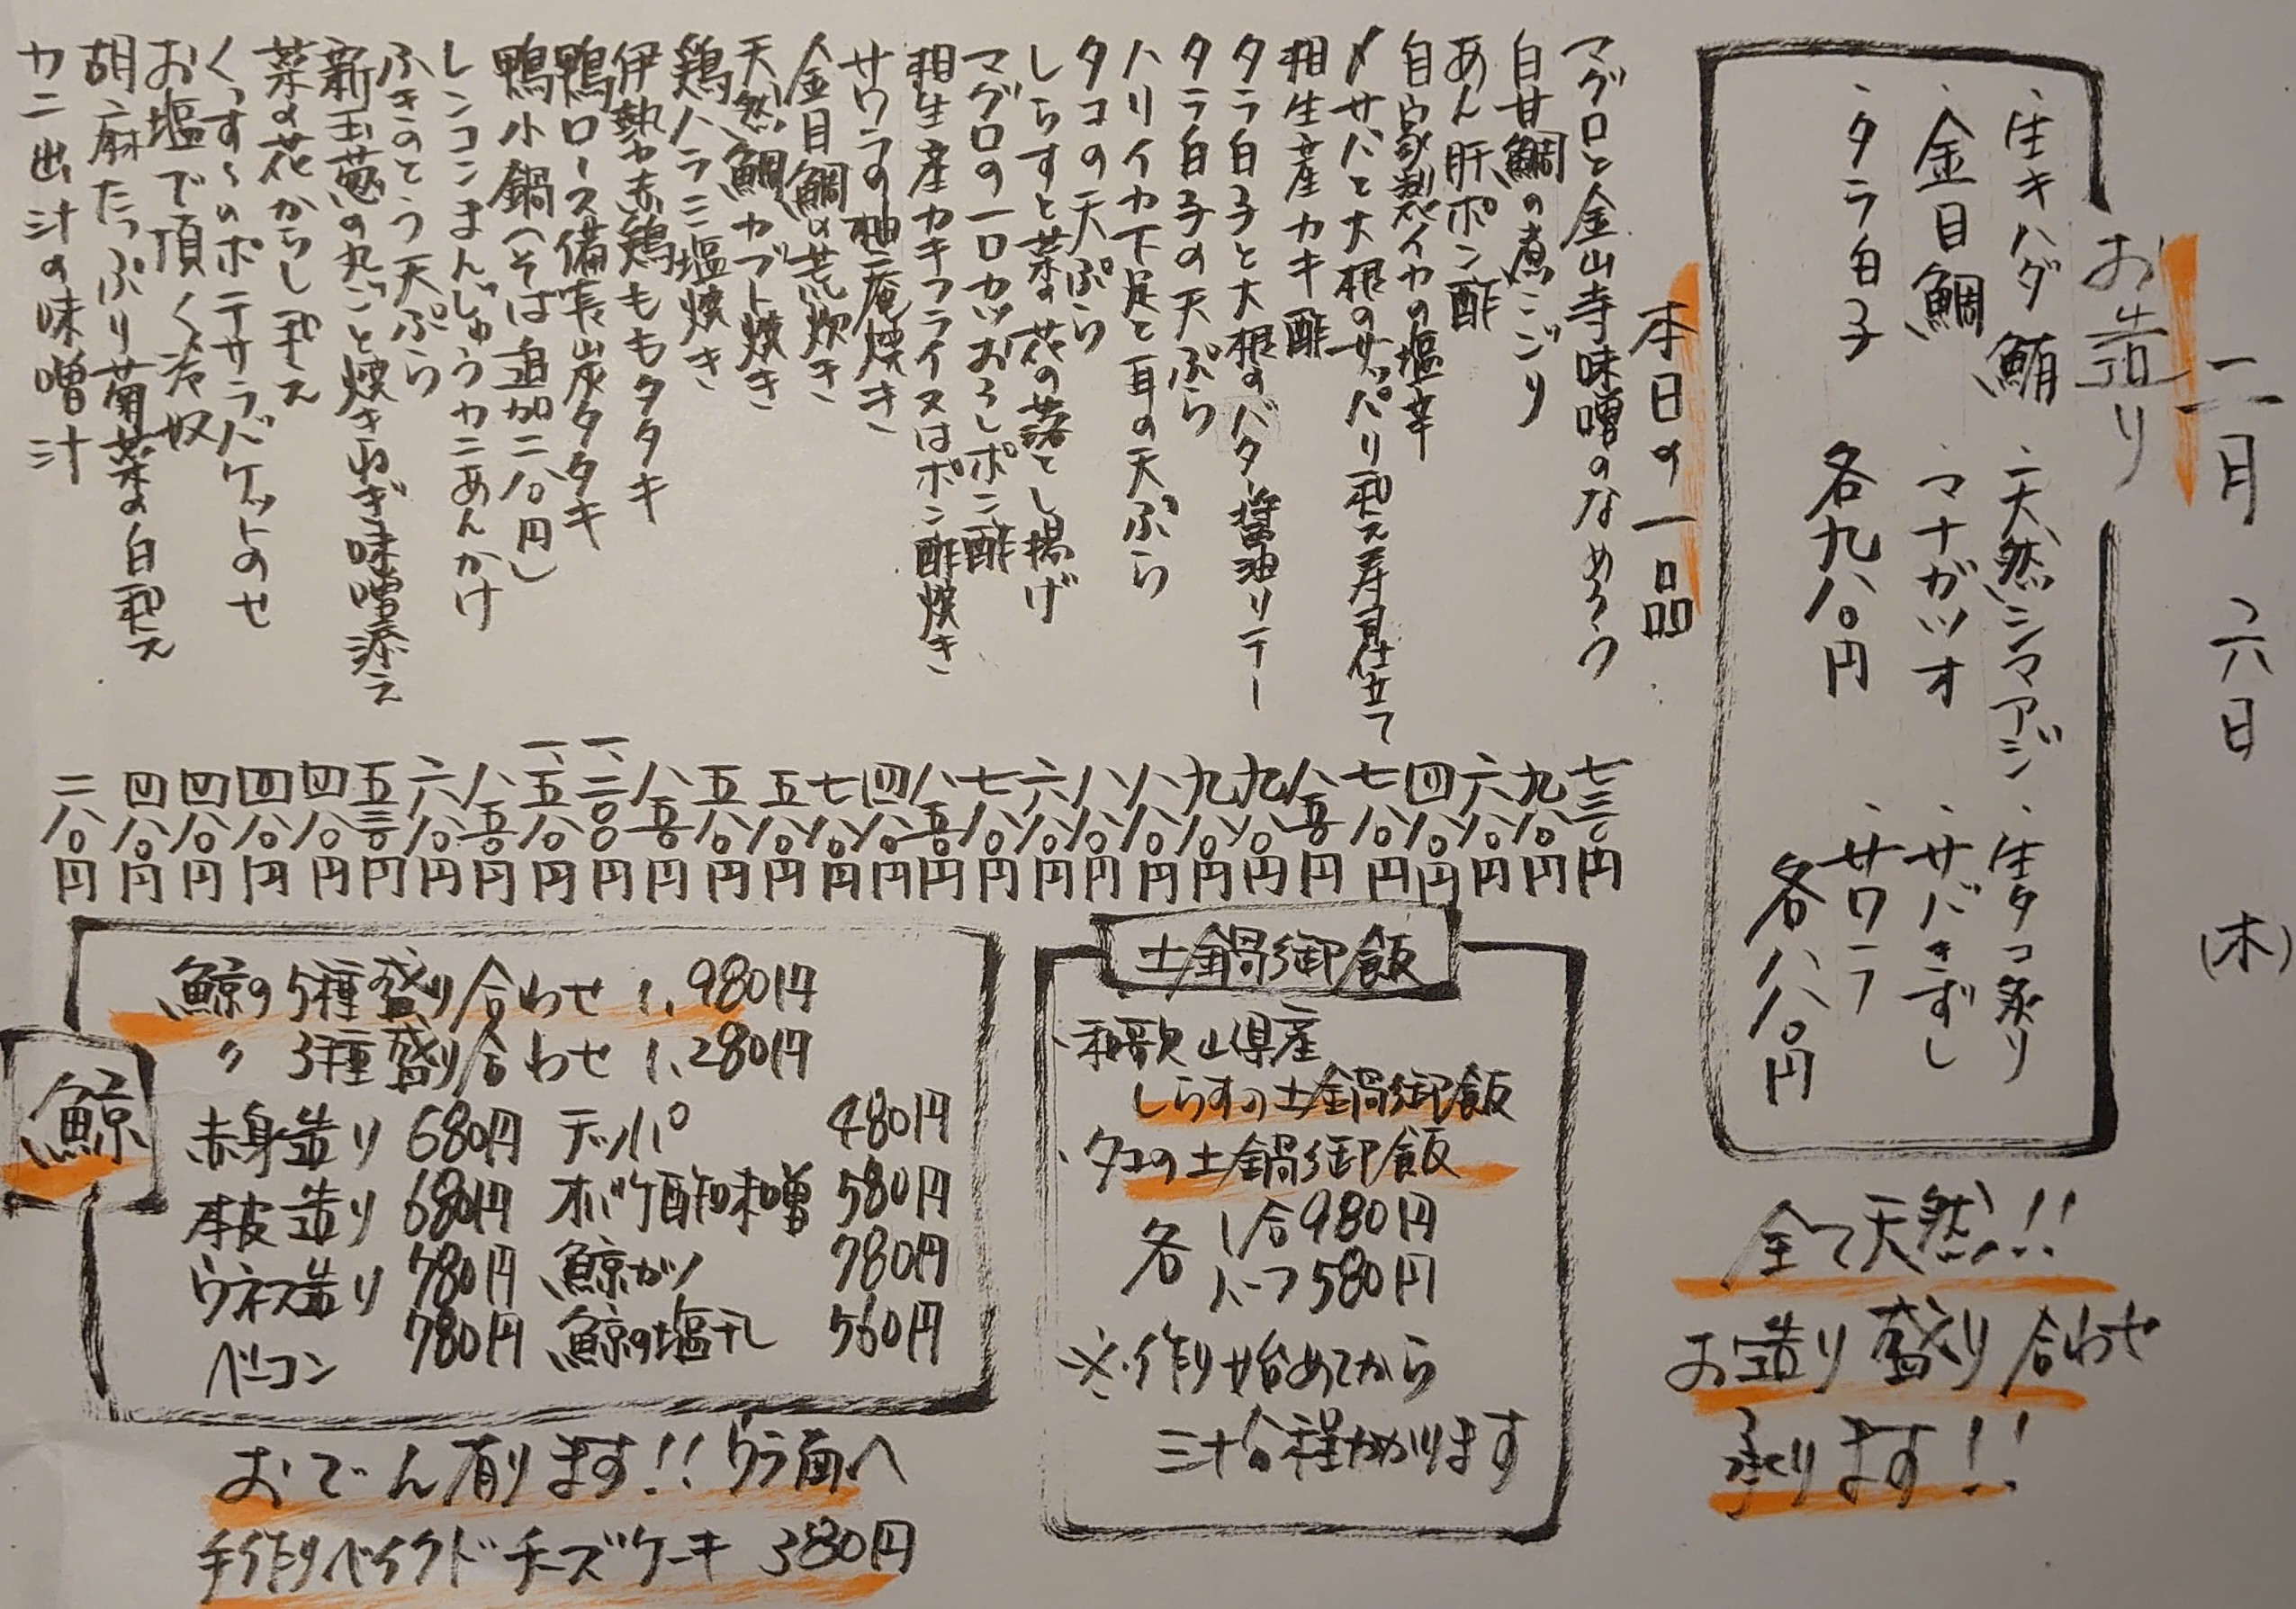 二月六日(木)
お造り
・生キハダ鮪 ・天然シマアジ ・生タコ炙り
・金目鯛 ・マナガツオ ・サバきずし
・タラ白子 各九八〇円 ・サワラ
各八八〇円
全て天然!!
お造り盛り合わせ
承ります!!
本日の一品
マグロと金山寺味噌のなめろう 七三〇円
白甘鯛の煮こごり 九八〇円
あん肝ポン酢 六八〇円
自家製イカの塩辛 四八〇円
〆サバと大根のサッパリ和え寿司仕立て 七八〇円
相生産カキ酢 八五〇円
タラ白子と大根のバター醤油ソテー 九八〇円
タラ白子の天ぷら 九八〇円
ハリイカ下足と耳の天ぷら 八八〇円
タコの天ぷら 八八〇円
しらすと菜の花の落とし揚げ 六八〇円
マグロの一口カツおろしポン酢 七八〇円
相生産カキフライ又はポン酢焼き 八五〇円
サワラの柚庵焼き 四八〇円
金目鯛の荒炊き 七八〇円
天然鯛カブト焼き 五八〇円
鶏ハラミ塩焼き 五八〇円
伊勢赤鶏ももタタキ 八五〇円
鴨ロース備長炭タタキ 一、二〇〇円
鴨小鍋(そば追加二八〇円) 一、五八〇円
レンコンまんじゅうカニあんかけ 八五〇円
ふきのとう天ぷら 六八〇円
新玉葱の丸ごと焼きねぎ味噌添え 五三〇円
菜の花からし和え 四八〇円
くっすんのポテサラバケットのせ 四八〇円
お塩で頂く冷奴 四八〇円
胡麻たっぷり菊菜の白和え 四八〇円
カニ出汁の味噌汁 二八〇円
土鍋御飯
・和歌山県産
しらすの土鍋御飯
・タコの土鍋御飯
各 1合980円
ハーフ580円
※作り始めてから
三十分程かかります
鯨
鯨の5種盛り合わせ 1,980円
〃 3種盛り合わせ 1,280円
赤身造り 680円 テッパ 480円
本皮造り 680円 オバケ酢味噌 580円
ウネス造り 780円 鯨カツ 780円
ベーコン 780円 鯨の塩干し 560円
おでん有ります!!ウラ面へ
手作りベイクドチーズケーキ 380円